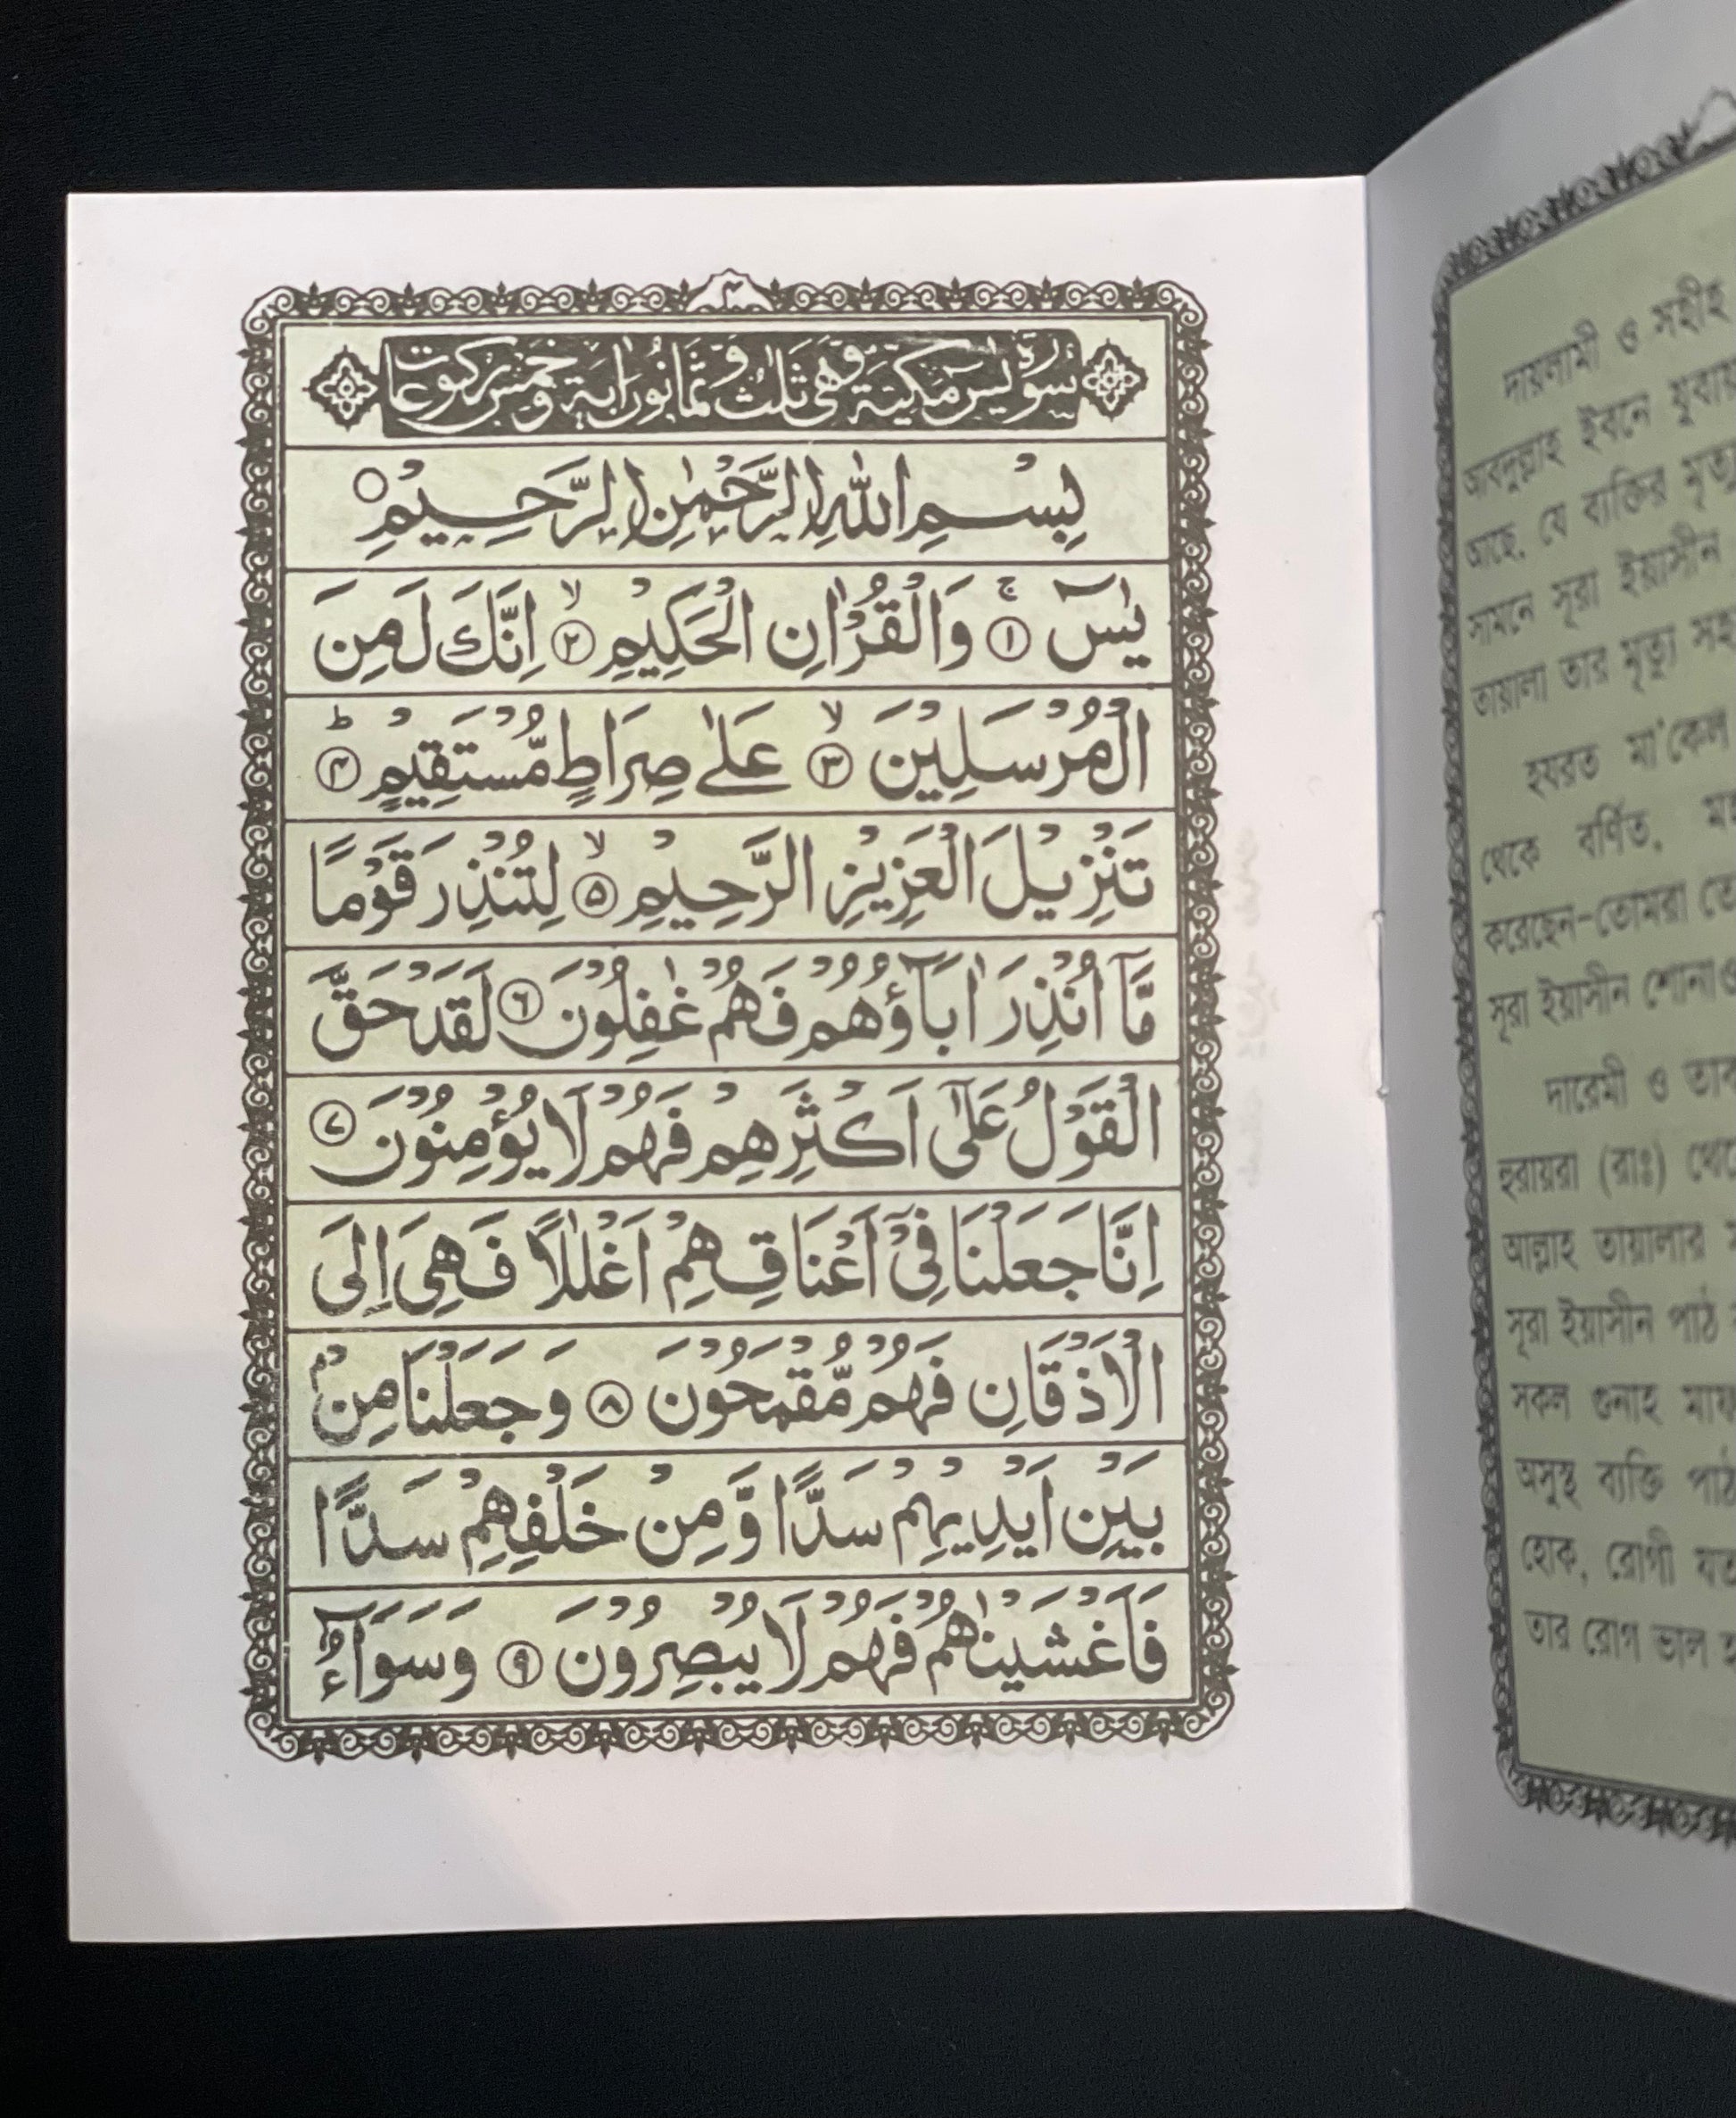 ۲
سورة يس مكية وهي ثلث وثمانون اية وخمس ركوعات
بِسْمِ اللّٰهِ الرَّحْمٰنِ الرَّحِيْمِ ○
يٰسٓ ۚ ① وَالْقُرْاٰنِ الْحَكِيْمِ ۙ ② اِنَّكَ لَمِنَ
الْمُرْسَلِيْنَ ۙ ③ عَلٰى صِرَاطٍ مُّسْتَقِيْمٍ ؕ ④
تَنْزِيْلَ الْعَزِيْزِ الرَّحِيْمِ ۙ ⑤ لِتُنْذِرَ قَوْمًا
مَّآ اُنْذِرَ اٰبَآؤُهُمْ فَهُمْ غٰفِلُوْنَ ⑥ لَقَدْ حَقَّ
الْقَوْلُ عَلٰٓى اَكْثَرِهِمْ فَهُمْ لَا يُؤْمِنُوْنَ ⑦
اِنَّا جَعَلْنَا فِيْٓ اَعْنَاقِهِمْ اَغْلٰلًا فَهِىَ اِلَى
الْاَذْقَانِ فَهُمْ مُّقْمَحُوْنَ ⑧ وَجَعَلْنَا مِنْۢ
بَيْنِ اَيْدِيْهِمْ سَدًّا وَّمِنْ خَلْفِهِمْ سَدًّا
فَاَغْشَيْنٰهُمْ فَهُمْ لَا يُبْصِرُوْنَ ⑨ وَسَوَآءٌ
দায়লামী ও সহীহ
আবদুল্লাহ ইবনে
আছে, যে ব্যক্তির
সামনে সূরা ইয়াসীন
তায়ালা তার মৃত্যু
হযরত মা'কেল
থেকে বর্ণিত,
করেছেন-তোমরা
সূরা ইয়াসীন
দারেমী ও
হুরায়রা (রাঃ)
আল্লাহ তায়ালার
সূরা ইয়াসীন পাঠ
সকল গুনাহ
অসুস্থ ব্যক্তি
হোক, রোগী
তার রোগ ভাল